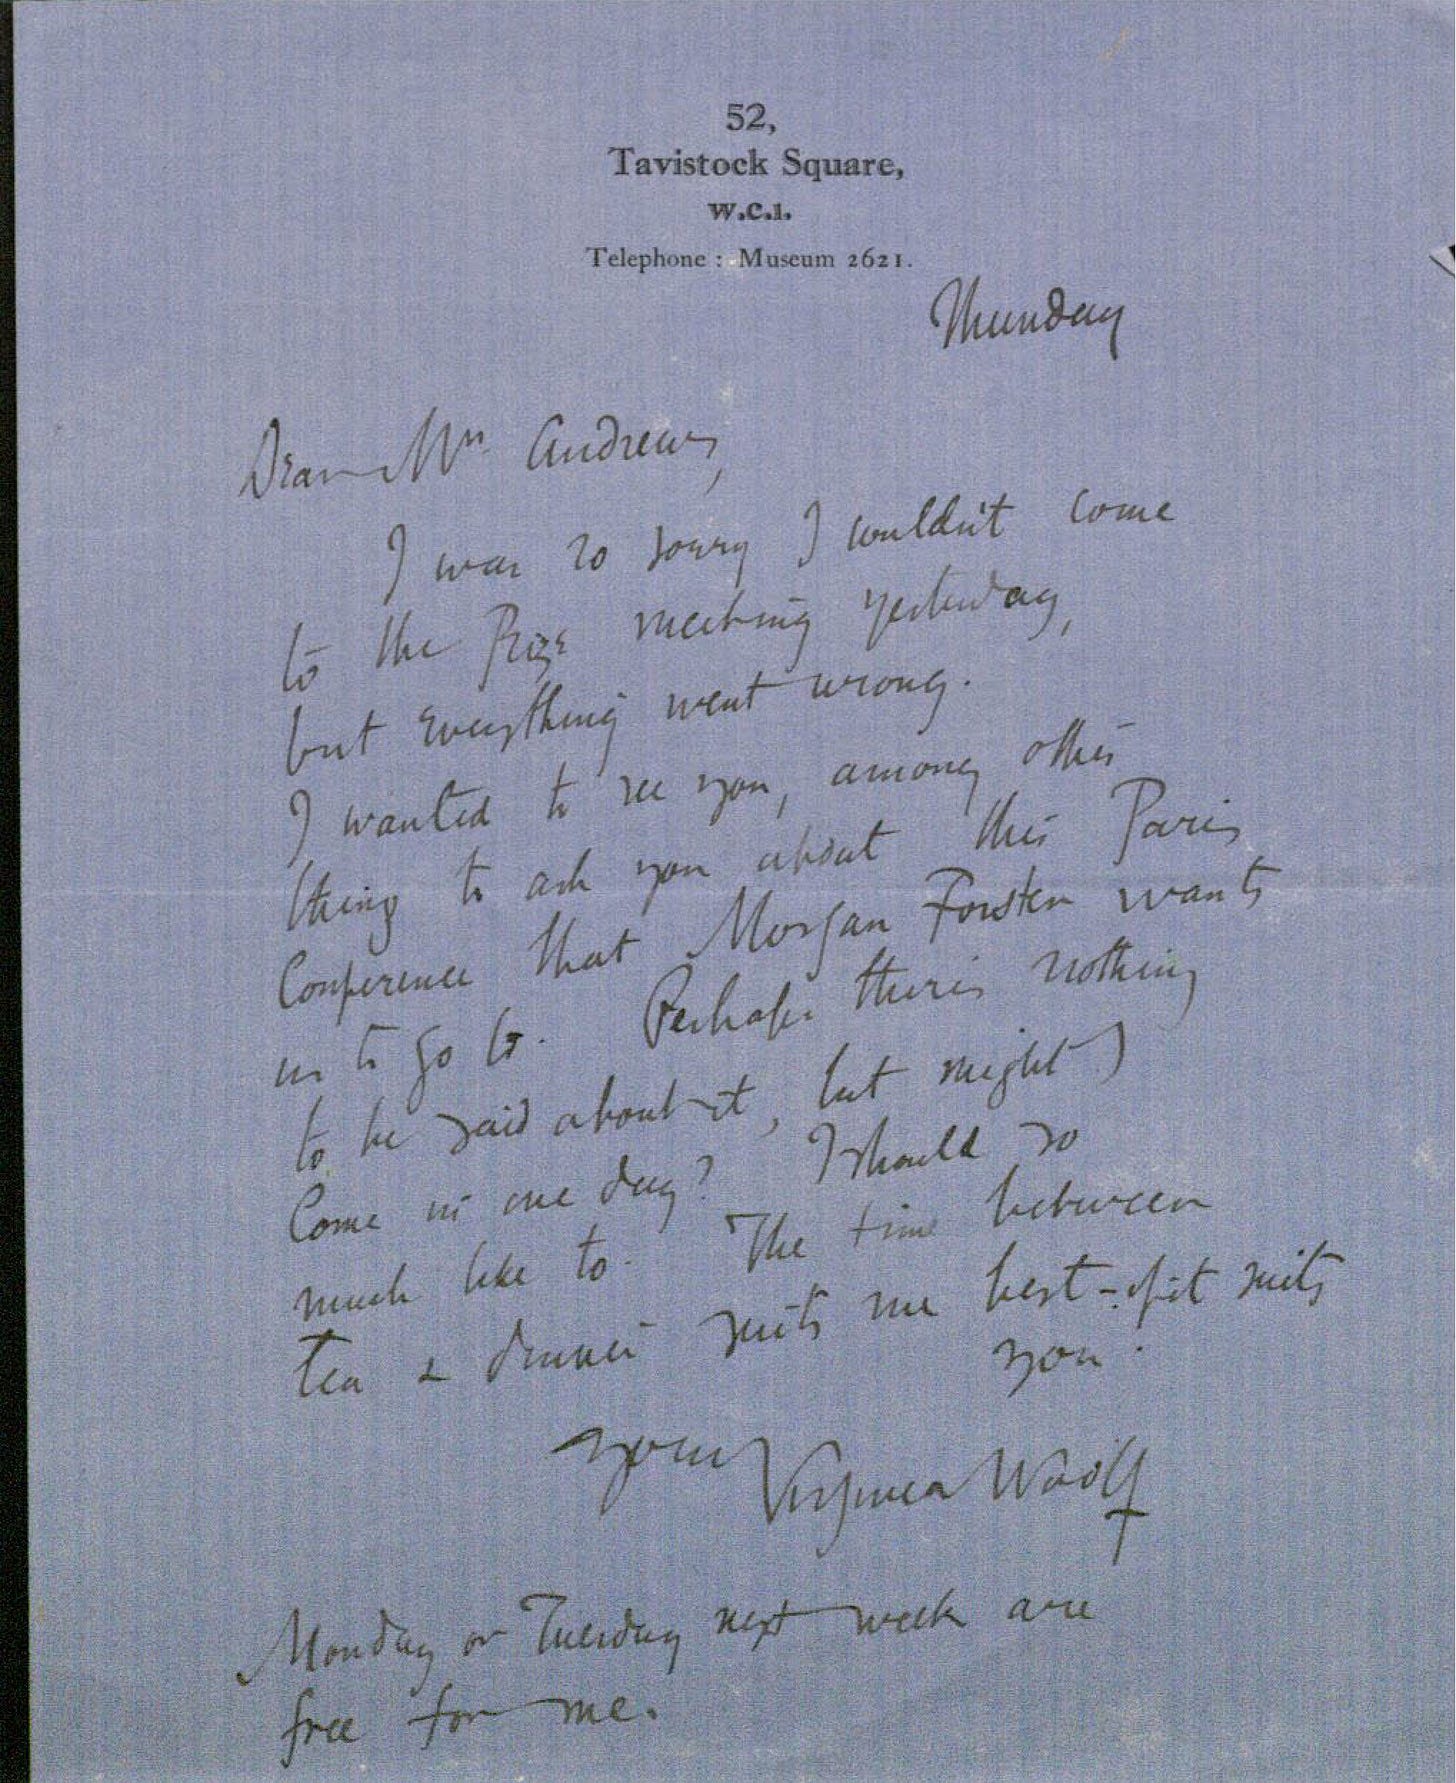 52,
Tavistock Square,
W.C.1.
Telephone : Museum 2621.
Thursday
Dear Mrs Andrews,
I was so sorry I couldn't come
to the Prize meeting yesterday,
but everything went wrong.
I wanted to see you, among other
things to ask you about this Paris
Conference that Morgan Forster wants
us to go to. Perhaps there is nothing
to be said about it, but might I
come in one day? I should so
much like to. The time between
tea & dinner suits me best - if it suits
you.
yours Virginia Woolf
Monday or Tuesday next week are
free for me.